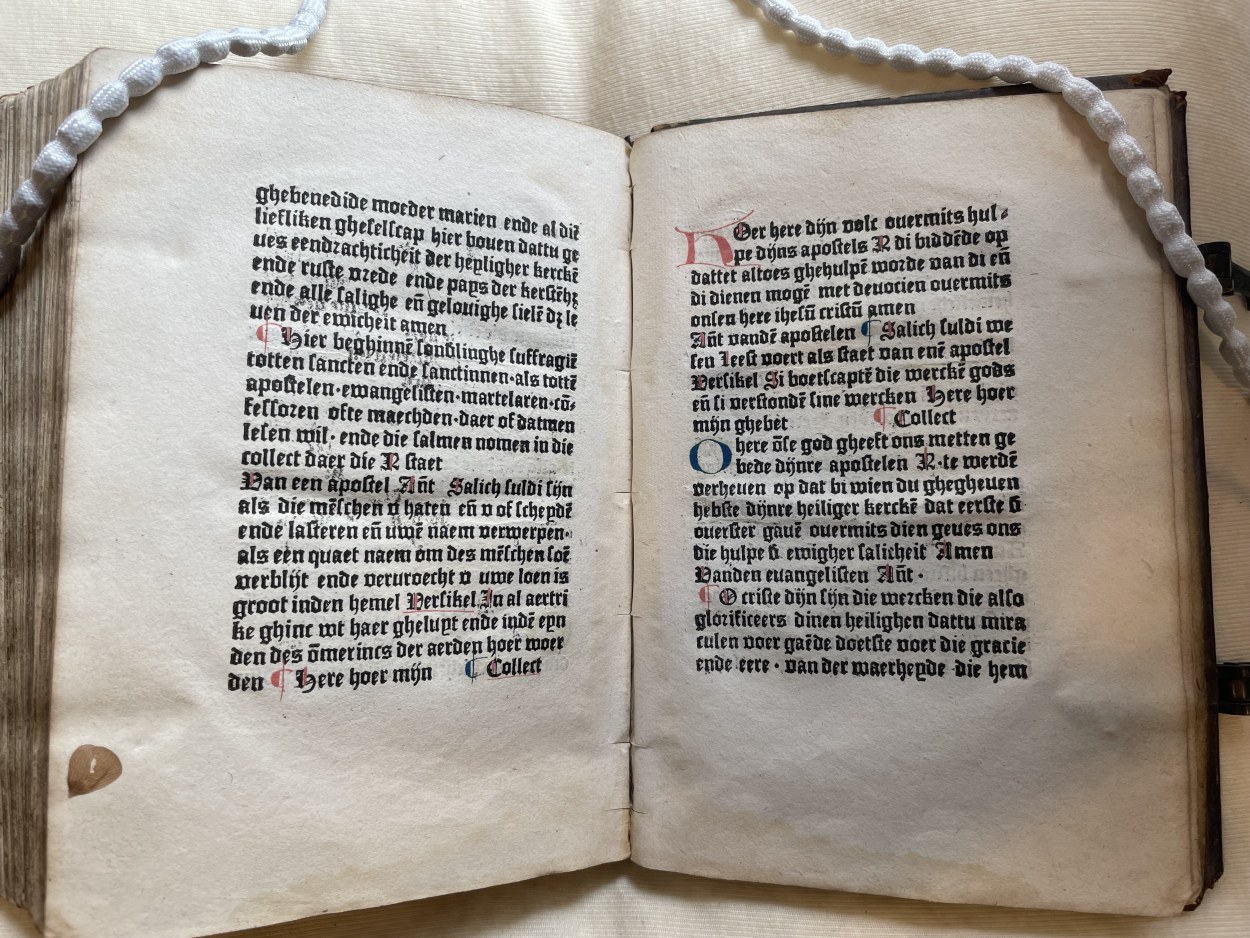 ghebenedide moeder marien ende al dit̃
liefliken ghefelſcap hier bouen dattu ge
ues eendrachticheit der heyligher kerckẽ
ende ruſte vrede ende pays der kerſtẽhz
ende alle ſalighe eñ gelouighe ſielẽ dz le
uen der ewicheit amen
¶ Hier beghinnẽ ſondlinghe ſuffragiẽ
totten ſancten ende ſanctinnen·als tottẽ
apoſtelen·ewangeliſten·martelaren·cõ⸗
feſſoren ofte maechden·daer of datmen
leſen wil·ende die ſalmen nomen in die
collect daer die N ſtaet
Van een apoſtel Añt Salich ſuldi ſijn
als die mẽſchen v haten eñ v of ſcheydẽ
ende laſteren eñ uwẽ naem verwerpen·
als een quaet naem om des mẽſchen ſoẽ
verblijt ende veruroecht v uwe loen is
groot inden hemel Verſikel In al aertri
ke ghinc wt haer gheluyt ende indẽ eyn
den des õmerincs der aerden hoer woer
den ¶ Here hoer mijn ¶ Collect
HOer here dijn volc ouermits hul⸗
pe dijns apoſtels N di biddẽde op
dattet altoes ghehulpẽ worde van di eñ
di dienen mogẽ met deuocien ouermits
onſen here iheſũ criſtũ amen
Añt vandẽ apoſtelen ¶ Salich ſuldi we
ſen Ieeſt voert als ſtaet van enẽ apoſtel
Verſikel Si boetſcaptẽ die werckẽ gods
eñ ſi verſtondẽ ſine wercken Here hoer
mijn ghebet ¶ Collect
O here õſe god gheeft ons metten ge
bede dijnre apoſtelen N·te werdẽ
verheuen op dat bi wien du ghegheuen
hebſte dijnre heiliger kerckẽ dat eerſte ẽn
ouerſter gauẽ ouermits dien geues ons
die hulpe ẽn ewigher ſalicheit Amen
Vanden euangeliſten Añt·
¶ O criſte dijn ſijn die wercken die alſo
glorificeers dinen heilighen dattu mira
culen voer gaẽde doetſte voer die gracie
ende eere · van der waerheyde die hem